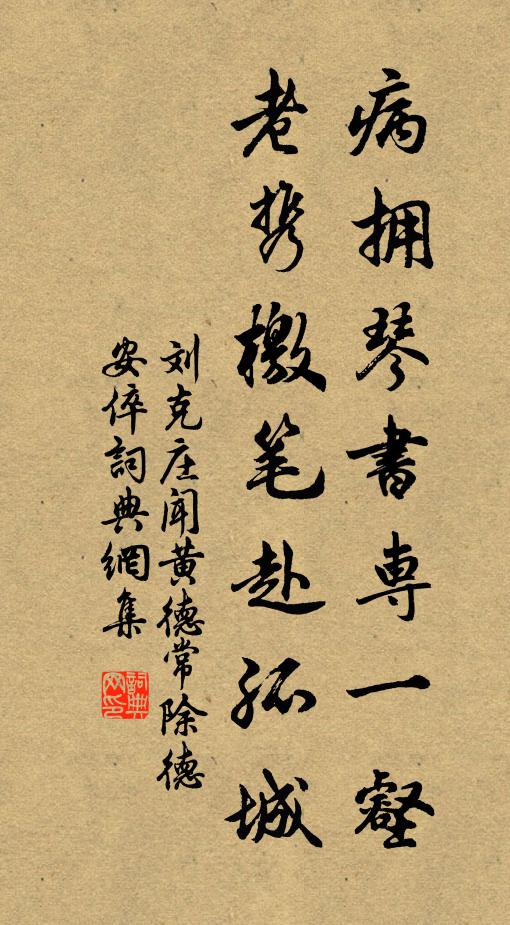 病拥琴書専一壑
老携檄笔赴孤城
刘克庄闻黄德常除德
安倅詞典網集
詞典网印